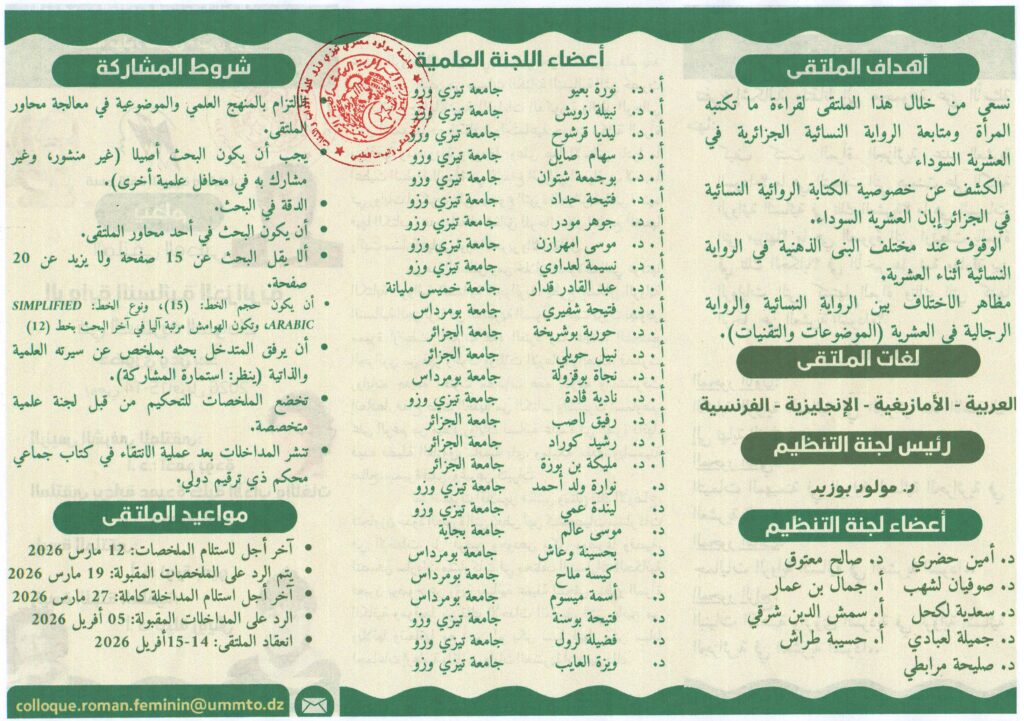 أهداف الملتقى
نسعى من خلال هذا الملتقى لقراءة ما تكتبه
المرأة ومتابعة الرواية النسائية الجزائرية في
العشرية السوداء.
الكشف عن خصوصية الكتابة الروائية النسائية
في الجزائر إبان العشرية السوداء.
الوقوف عند مختلف البنى الذهنية في الرواية
النسائية أثناء العشرية.
مظاهر الاختلاف بين الرواية النسائية والرواية
الرجالية في العشرية (الموضوعات والتقنيات).
لغات الملتقى
العربية - الأمازيغية - الإنجليزية - الفرنسية
رئيس لجنة التنظيم
د. مولود بوزيد
أعضاء لجنة التنظيم
د. أمين حضري د. صالح معتوق
د. صوفيان لشهب أ. جمال بن عمار
د. سعدية لكحل أ. سمش الدين شرقي
د. جميلة لعبادي أ. حسيبة طراش
د. صليحة مرابطي
أعضاء اللجنة العلمية
أ. د. نورة بعيو جامعة تيزي وزو
أ. د. نبيلة زويش جامعة تيزي وزو
أ. د. ليديا قرشوح جامعة تيزي وزو
أ. د. سهام صايل جامعة تيزي وزو
أ. د. بوجمعة شتوان جامعة تيزي وزو
أ. د. فتيحة حداد جامعة تيزي وزو
أ. د. جوهر مودر جامعة تيزي وزو
أ. د. موسى امهرازن جامعة تيزي وزو
أ. د. نسيمة لعداوي جامعة تيزي وزو
أ. د. عبد القادر قدار جامعة خميس مليانة
أ. د. فتيحة شفيري جامعة بومرداس
أ. د. حورية بوشريخة جامعة الجزائر
أ. د. نبيل حويلي جامعة الجزائر
أ. د. نجاة بوقزولة جامعة بومرداس
أ. د. نادية قادة جامعة تيزي وزو
أ. د. رفيق لاصب جامعة الجزائر
أ. د. رشيد كوراد جامعة الجزائر
أ. د. مليكة بن بوزة جامعة الجزائر
د. نوارة ولد أحمد جامعة تيزي وزو
د. ليندة عمي جامعة تيزي وزو
د. موسى عالم جامعة بجاية
د. يحسينة وعاش جامعة بومرداس
د. كيسة ملاح جامعة بومرداس
د. لامة شموم جامعة بومرداس
د. فتيحة بوسنة جامعة تيزي وزو
د. فضيلة لرول جامعة تيزي وزو
د. ويزة العايب جامعة تيزي وزو
شروط المشاركة
• الالتزام بالمنهج العلمي والموضوعية في معالجة محاور
الملتقى.
• يجب أن يكون البحث أصيلا (غير منشور، وغير
مشارك به في محافل علمية أخرى).
• الدقة في البحث.
• أن يكون البحث في أحد محاور الملتقى.
• ألا يقل البحث عن 15 صفحة ولا يزيد عن 20
صفحة.
• أن يكون حجم الخط: (15)، ونوع الخط: SIMPLIFIED
ARABIC، وتكون الهوامش مرتبة آليا في آخر البحث بخط (12)
• أن يرفق المتدخل بحثه بملخص عن سيرته العلمية
والذاتية (ينظر: استمارة المشاركة).
• تخضع الملخصات للتحكيم من قبل لجنة علمية
متخصصة.
• تنشر المداخلات بعد عملية الانتقاء في كتاب جماعي
محكم ذي ترقيم دولي.
مواعيد الملتقى
• آخر أجل لاستلام الملخصات: 12 مارس 2026
• يتم الرد على الملخصات المقبولة: 19 مارس 2026
• آخر أجل استلام المداخلة كاملة: 27 مارس 2026
• الرد على المداخلات المقبولة: 05 أفريل 2026
• انعقاد الملتقى: 14-15أفريل 2026
colloque.roman.feminin@ummto.dz